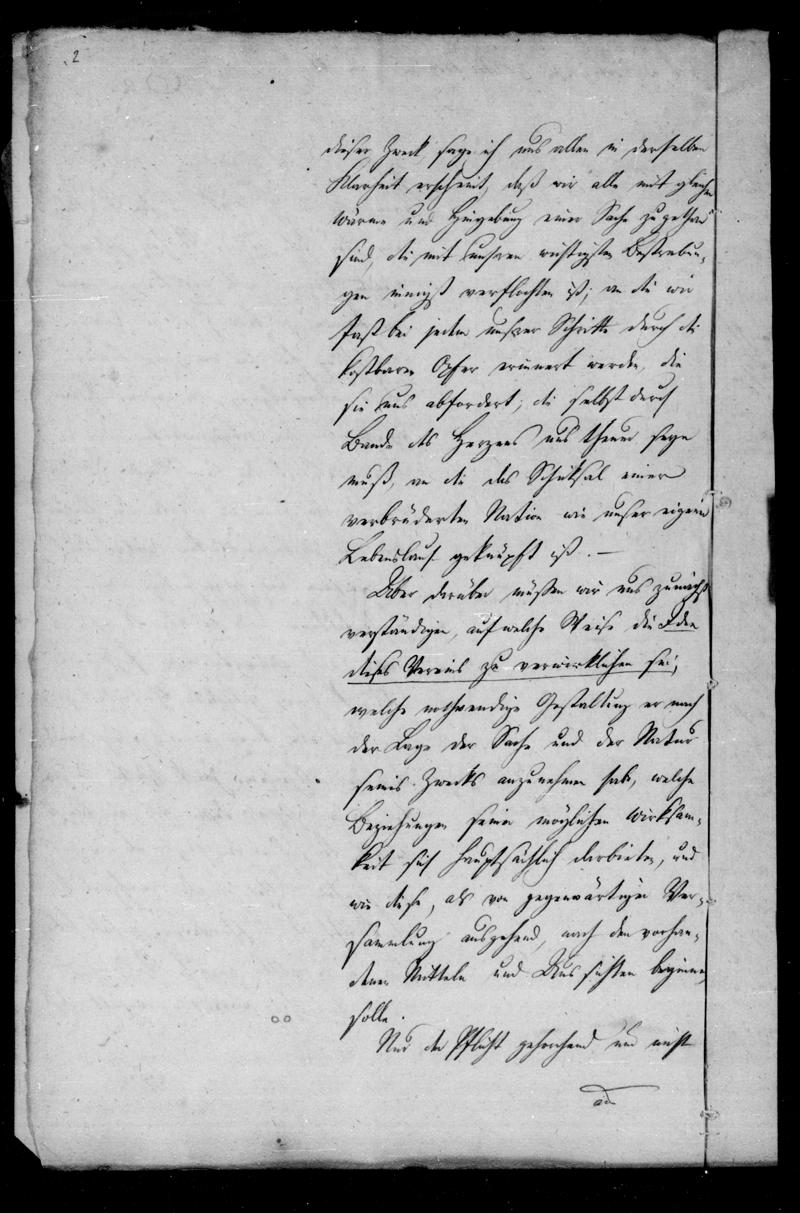 2
dieser Zweck sage ich uns allen in derselben
Klarheit erscheint, daß wir alle mit gleicher
Wärme und Hingebung einer Sache zugethan
sind, die mit unsren wichtigsten Bestrebun-
gen innigst verflochten ist; an die wir
fast bei jedem unsrer Schritte durch die
kostbaren Opfer erinnert werden, die
sie uns abfordert; die selbst durch
Bande des Herzens uns theuer seyn
muß, an die das Schiksal einer
verbrüderten Nation wie unser eigener
Lebenslauf geknüpft ist. —
Aber darüber müßen wir uns zunächst
verständigen, auf welche Weise die Idee
dieses Vereins zu verwirklichen sei,
welche nothwendige Gestaltung er nach
der Lage der Sache und der Natur
seines Zwecks anzunehmen habe, welche
Beziehungen seiner möglichen Wirksam-
keit sich hauptsächlich darbieten, und
wie diese, als von gegenwärtiger Ver-
sammlung ausgehend, nach den vorhan-
denen Mitteln und Aussichten beginnen
solle.
Nur der Pflicht gehorchend und nicht